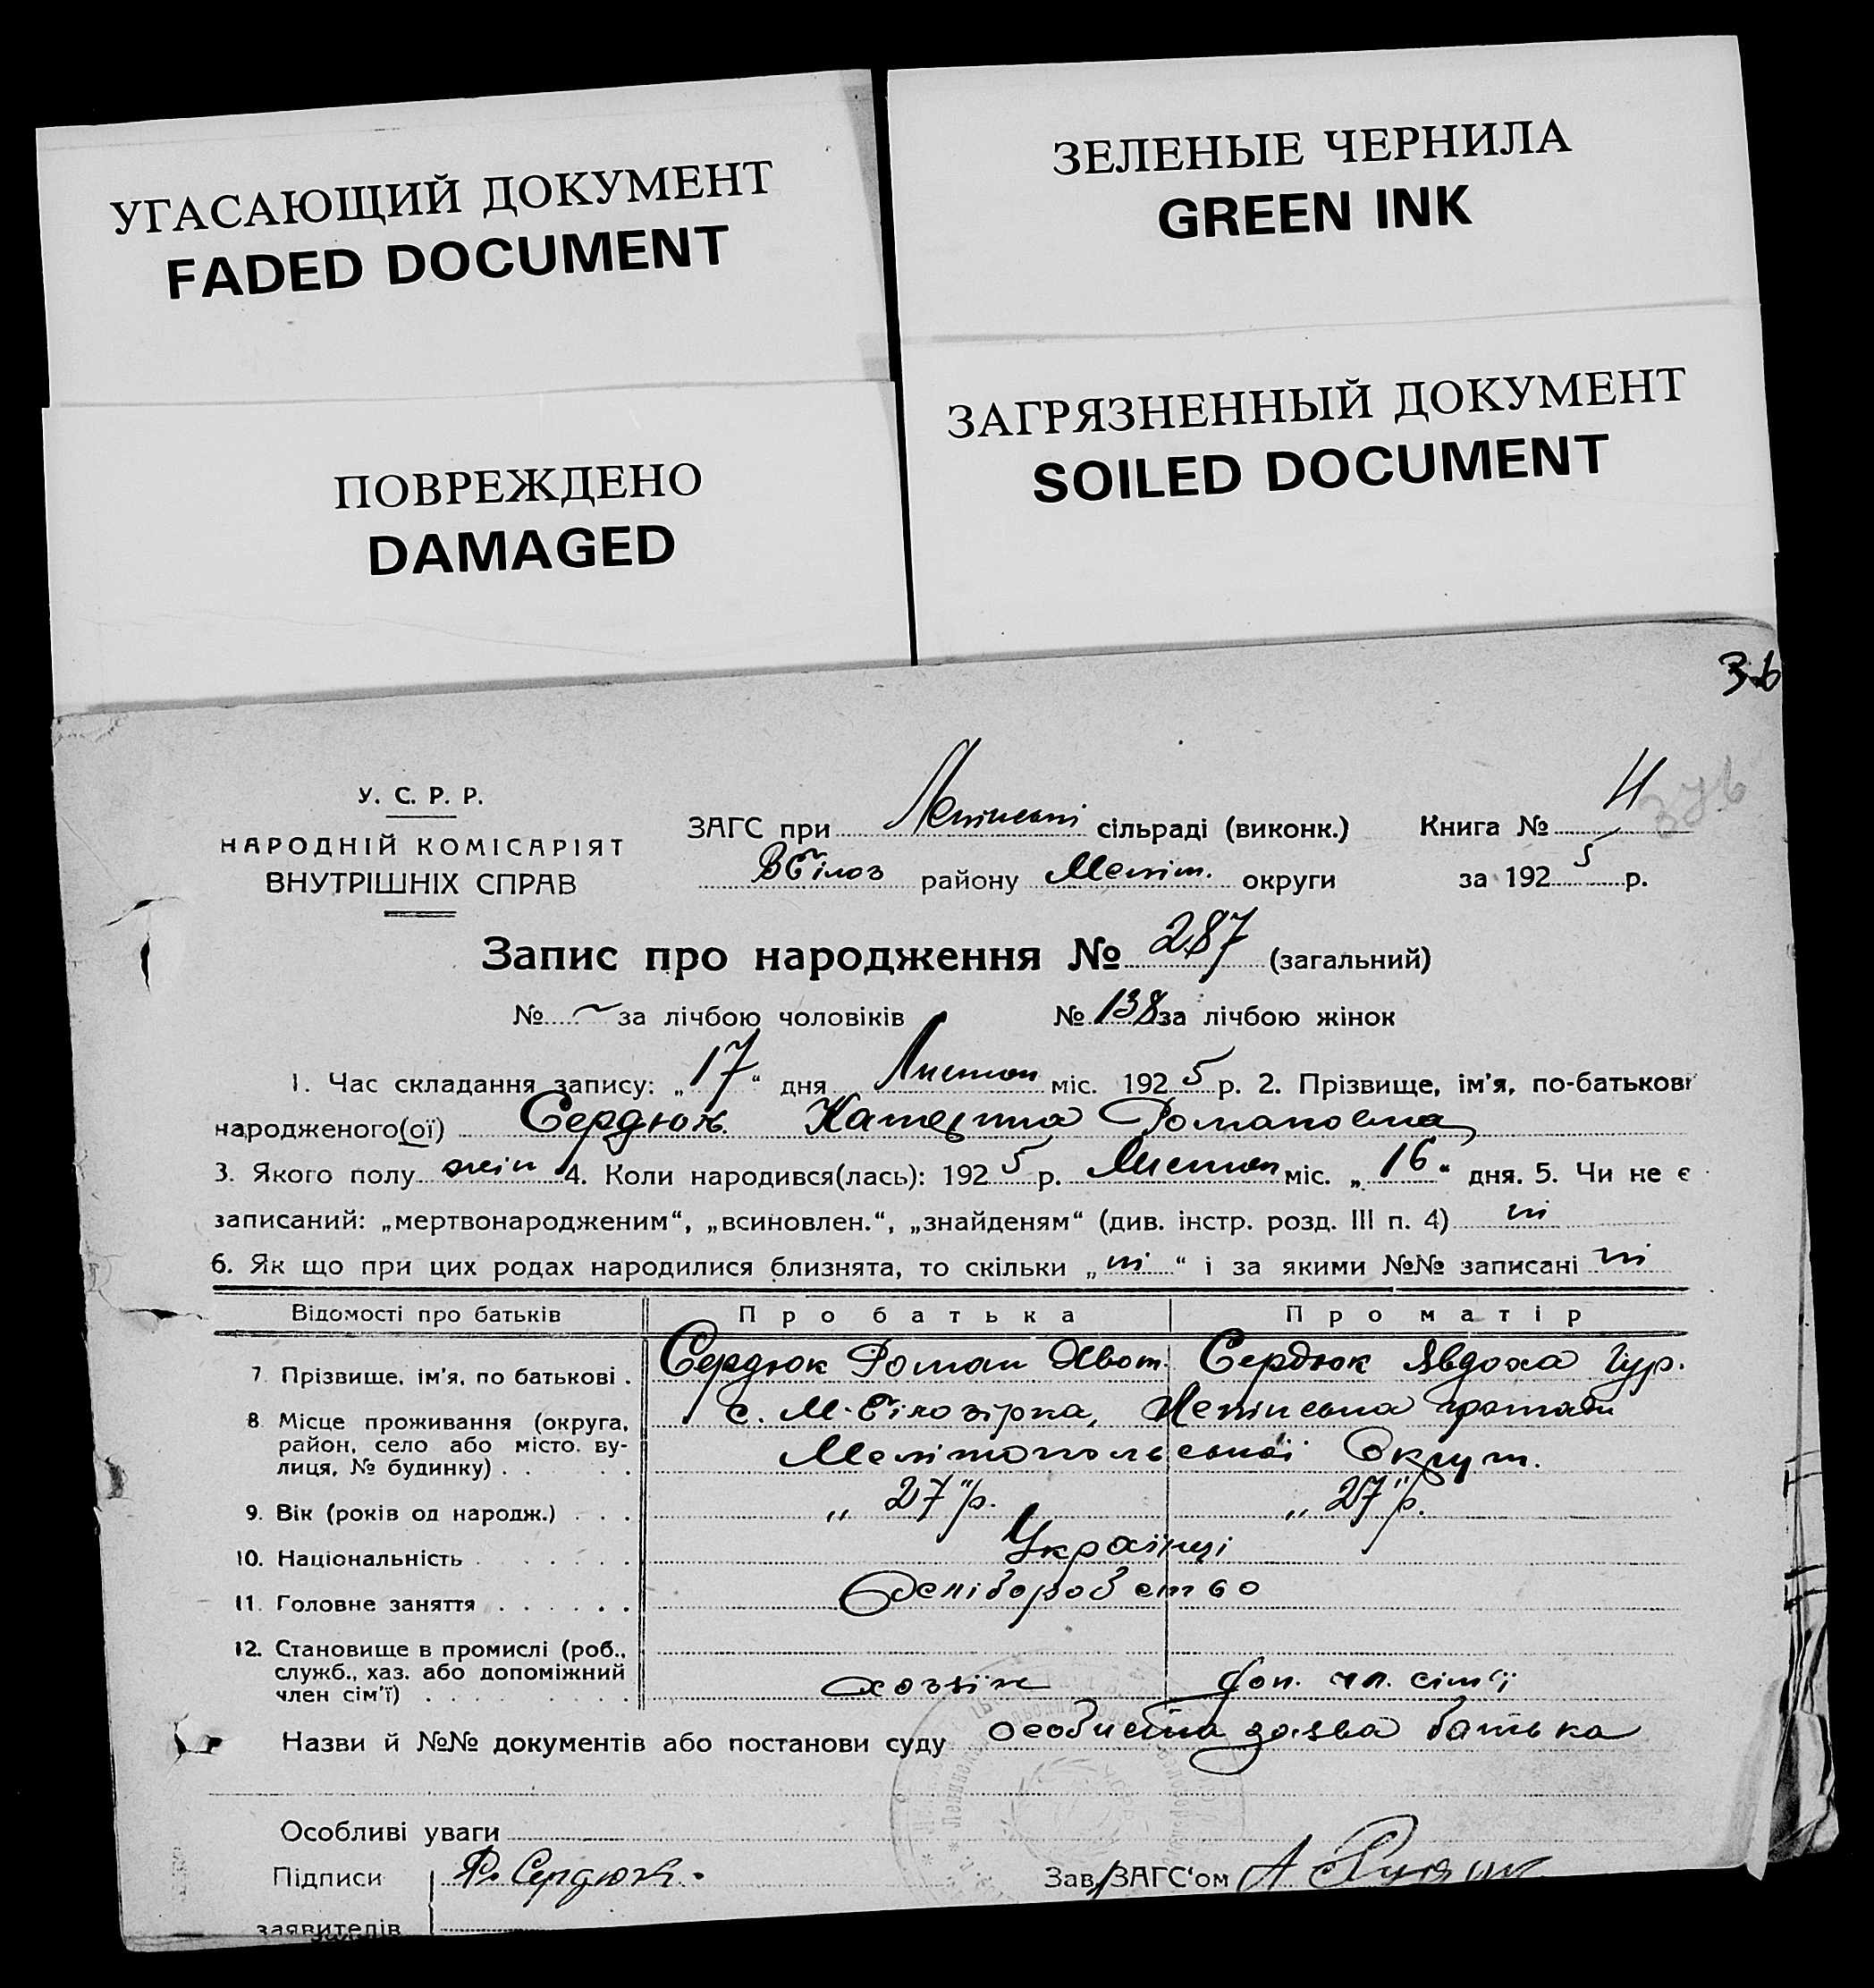 УГАСАЮЩИЙ ДОКУМЕНТ
FADED DOCUMENT
ЗЕЛЕНЫЕ ЧЕРНИЛА
GREEN INK
ПОВРЕЖДЕНО
DAMAGED
ЗАГРЯЗНЕННЫЙ ДОКУМЕНТ
SOILED DOCUMENT
36
376
У. С. Р. Р.
НАРОДНІЙ КОМІСАРІЯТ
ВНУТРІШНІХ СПРАВ
ЗАГС при сільраді (виконк.) Книга №
В Білоз району Меліт. округи за 1925 р.
Запис про народження № 287 (загальний)
№ ~ за лічбою чоловіків № 138 за лічбою жінок
1. Час складання запису: „17“ дня Листоп міс. 1925 р. 2. Прізвище, ім'я, по-батькові
народженого(ої) Сердюк Катерина Романовна
3. Якого полу жін 4. Коли народився(лась): 1925 р. Листоп міс. „16“ дня. 5. Чи не є
записаний: „мертвонародженим“, „всиновлен.“, „знайденям“ (див. інстр. розд. III п. 4) ні
6. Як що при цих родах народилися близнята, то скільки „ні“ і за якими №№ записані ні
Відомості про батьків Про батька Про матір
7. Прізвище, ім'я, по батькові . Сердюк Роман Сердюк Явдоха Гур.
8. Місце проживання (округа, с. М-Білозірка, громади
район, село або місто, ву- Мелітопольської Округ.
лиця, № будинку) . . . .
9. Вік (років од народж.) . . . „27“ р. „27“ р.
10. Національність . . . . . . . Українці
11. Головне заняття . . . . . .
12. Становище в промислі (роб.,
служб., хаз. або допоміжний хозяїн доп. чл. сім'ї
член сім'ї) . . . . . . . . .
Назви й №№ документів або постанови суду особиста заява батька
Особливі уваги
Підписи Р. Сердюк. Зав. ЗАГС'ом
заявителів